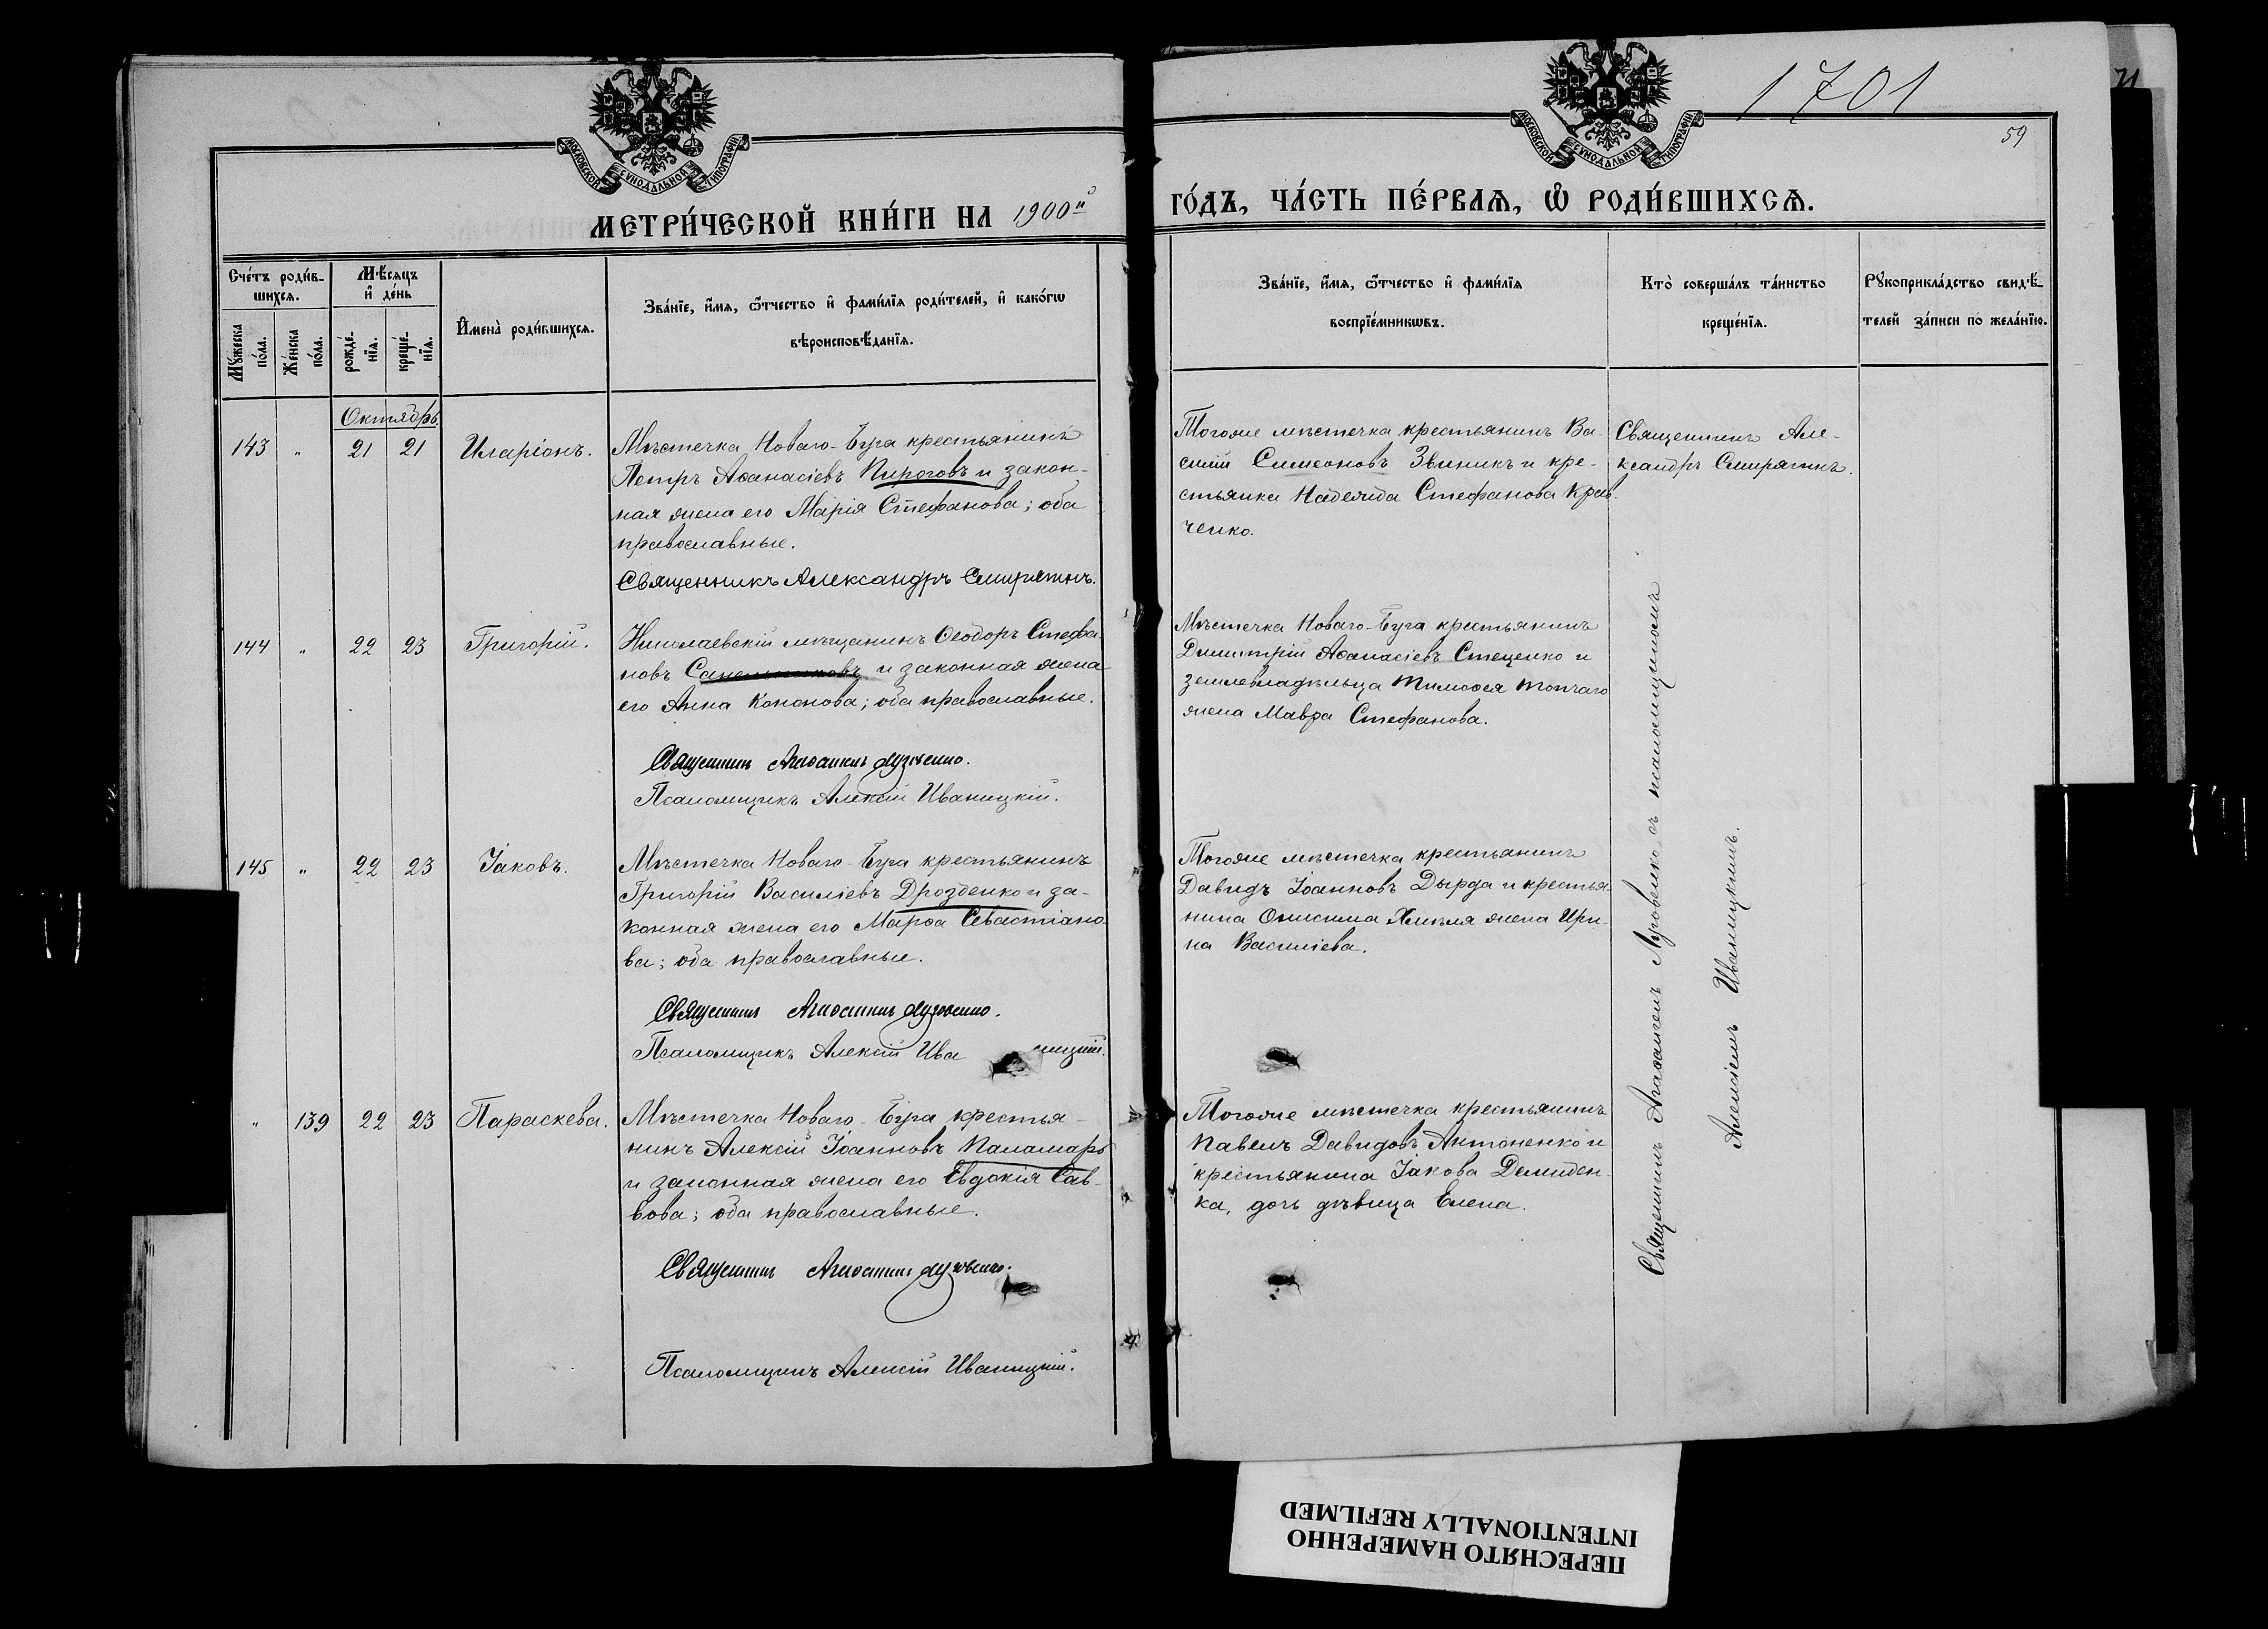 1701
59
МОСКОВСКОЙ СѴНОДАЛЬНОЙ ТИПОГРАФІИ
МОСКОВСКОЙ СѴНОДАЛЬНОЙ ТИПОГРАФІИ
МЕТРИ́ЧЕСКОЙ КНИ́ГИ НА 1900й
ГО́ДЪ, ЧА́СТЬ ПЕ́РВАѦ, Ѡ҆ РОДИ́ВШИХСѦ.
Сче́тъ роди́в-
шихсѧ.
Мꙋ́жеска
по́ла.
Же́нска
по́ла.
Мѣ́сѧцъ
и҆ де́нь
рожде́-
нїѧ.
креще́-
нїѧ.
И҆мена̀ роди́вшихсѧ.
Зва́нїе, и҆́мѧ, ѻ҆́тчество и҆ фами́лїѧ роди́телей, и҆ како́гѡ
вѣроисповѣ́данїѧ.
Зва́нїе, и҆́мѧ, ѻ҆́тчество и҆ фами́лїѧ
воспрїе́мникѡвъ.
Кто̀ соверша́лъ та́инство
креще́нїѧ.
Рꙋкоприкла́дство свидѣ́-
телей за́писи по жела́нїю.
Октябрь
143 " 21 21 Иларіонъ.
Мѣстечка Новаго-Буга крестьянинъ
Петръ Аѳанасіевъ Пироговъ и закон-
ная жена его Марія Стефанова; оба
православные.
Священникъ Александръ Смирягинъ.
Тогоже мѣстечка крестьянинъ Ва-
силій Симеоновъ Звиникъ и кре-
стьянка Надежда Стефанова Крав-
ченко.
Священникъ Але-
ксандръ Смирягинъ.
144 " 22 23 Григорій.
Николаевскій мѣщанинъ Ѳеодоръ Стефа-
новъ и законная жена
его Анна Кононова; оба православные.
Священникъ Агаѳангелъ Лузовенко.
Псаломщикъ Алексій Иваницкій.
Мѣстечка Новаго-Буга крестьянинъ
Димитрій Аѳанасіевъ Стеценко и
землевладѣльца Тимоѳея Топчаго
жена Мавра Стефанова.
145 " 22 23 Іаковъ.
Мѣстечка Новаго-Буга крестьянинъ
Григорій Василіевъ Дрозденко и за-
конная жена его Марѳа Севастіано-
ва; оба православные.
Священникъ Агаѳангелъ Лузовенко.
Псаломщикъ Алексій Иваницкій.
Тогоже мѣстечка крестьянинъ
Давидъ Іоанновъ Дырда и крестья-
нина Онисима Хмѣля жена Ири-
на Василіева.
" 139 22 23 Параскева.
Мѣстечка Новаго-Буга крестья-
нинъ Алексій Іоанновъ Паламарь
и законная жена его Евдокія Сав-
вова; оба православные.
Священникъ Агаѳангелъ Лузовенко.
Псаломщикъ Алексій Иваницкій.
Тогоже мѣстечка крестьянинъ
Павелъ Давидовъ Антоненко и
крестьянина Іакова Демиден-
ка, дочь дѣвица Елена.
Священникъ Агаѳангелъ Лузовенко съ псаломщикомъ
Алексіемъ Иваницкимъ.
ПЕРЕСНЯТО НАМЕРЕННО
INTENTIONALLY REFILMED